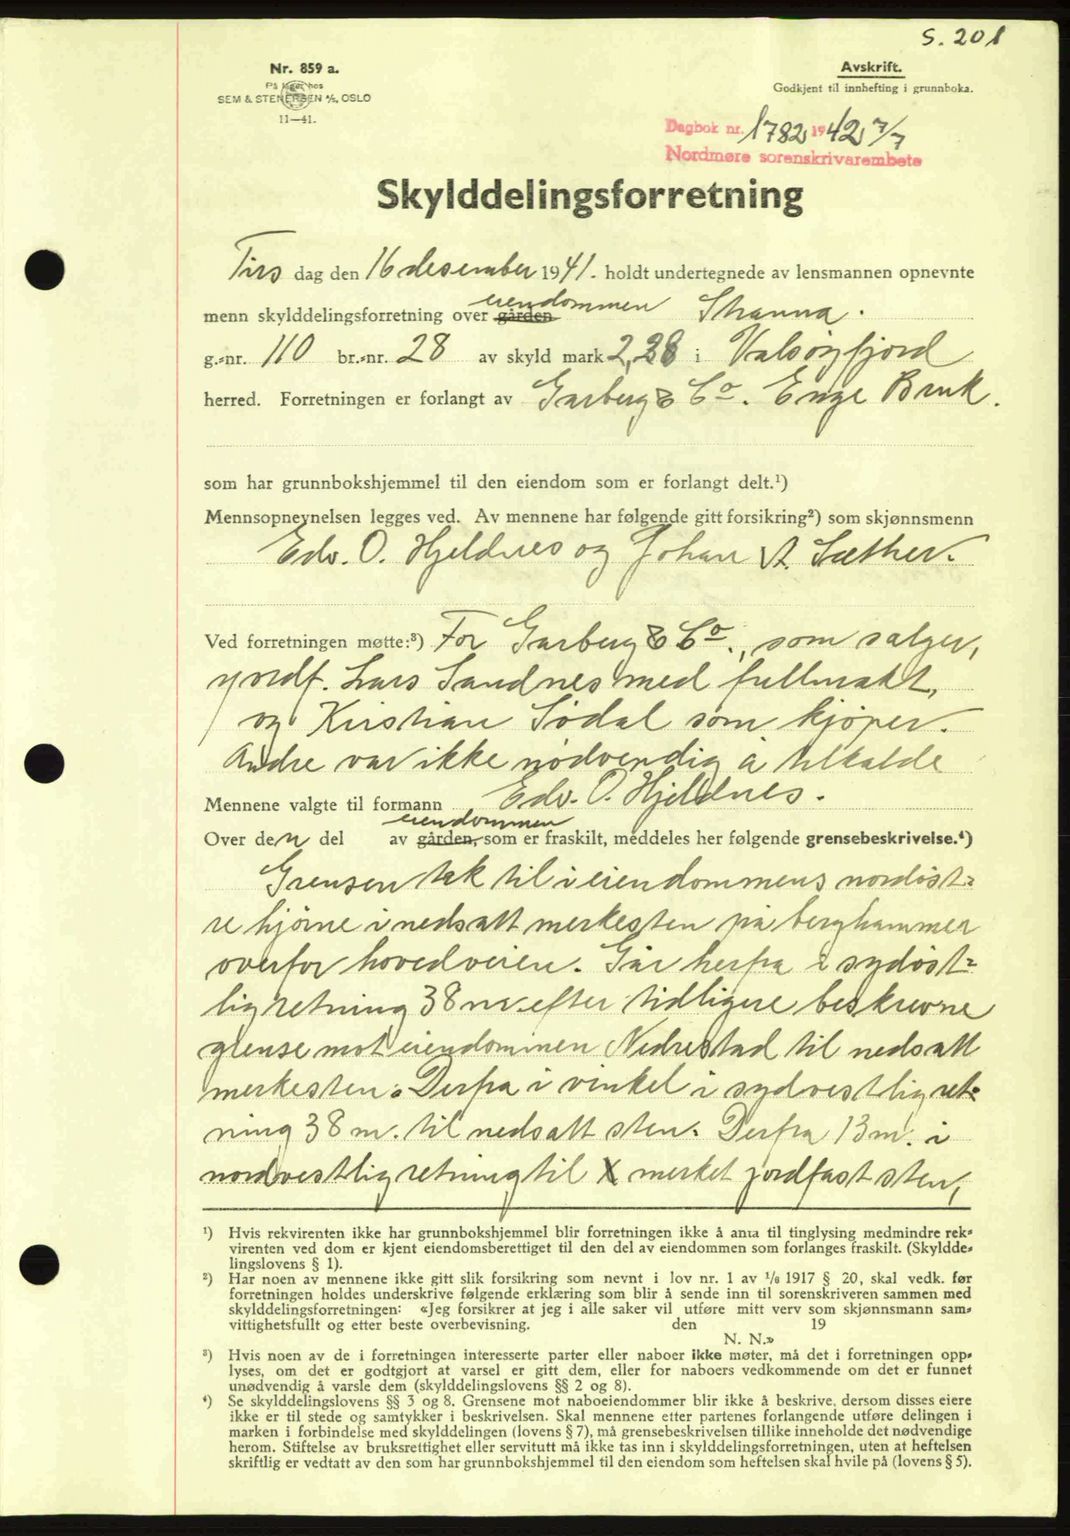 S. 201
Nr. 859 a.
På lager hos
SEM & STENERSEN A/S, OSLO
11—41.
Avskrift.
Godkjent til innhefting i grunnboka.
Dagbok nr. 1782 1942 7/7
Nordmøre sorenskrivarembete
Skylddelingsforretning
Tirs dag den 16 desember 1941. holdt undertegnede av lensmannen opnevnte
menn skylddelingsforretning over gården eiendommen Stranna.
g.-nr. 110 br.-nr. 28 av skyld mark 2,28 i Valsøyfjord
herred. Forretningen er forlangt av Garberg & Co. Enge Bruk.
som har grunnbokshjemmel til den eiendom som er forlangt delt.¹)
Mennsopnevnelsen legges ved. Av mennene har følgende gitt forsikring²) som skjønnsmenn
Edv. O. Hjeldnes og Johan A. Sæther.
Ved forretningen møtte:³) For Garberg & Co., som selger,
Lars Sandnes med fullmakt,
og Kristian Sødal som kjøper.
Andre var ikke nødvendig å tilkalde
Mennene valgte til formann Edv. O. Hjeldnes.
Over den del av gården, eiendommen som er fraskilt, meddeles her følgende grensebeskrivelse.⁴)
Grensen tok til i eiendommens nordøst-
re hjørne i nedsatt merkesten på berghammer
overfor hovedveien. Går herfra i sydøst-
lig retning 38 m. efter tidligere beskrevne
grense mot eiendommen Nedrestad til nedsatt
merkesten. Derfra i vinkel i sydvestlig ret-
ning 38 m. til nedsatt sten. Derfra 13 m. i
nordvestlig retning til X merket jordfast sten,
¹) Hvis rekvirenten ikke har grunnbokshjemmel blir forretningen ikke å anta til tinglysing medmindre rek-
virenten ved dom er kjent eiendomsberettiget til den del av eiendommen som forlanges fraskilt. (Skyldde-
lingslovens § 1).
²) Har noen av mennene ikke gitt slik forsikring som nevnt i lov nr. 1 av 1/6 1917 § 20, skal vedk. før
forretningen holdes underskrive følgende erklæring som blir å sende inn til sorenskriveren sammen med
skylddelingsforretningen: «Jeg forsikrer at jeg i alle saker vil utføre mitt verv som skjønnsmann sam-
vittighetsfullt og etter beste overbevisning. den 19
N. N.»
³) Hvis noen av de i forretningen interesserte parter eller naboer ikke møter, må det i forretningen opp-
lyses, om det er godtgjort at varsel er gitt dem, eller for naboers vedkommende om det er funnet
unødvendig å varsle dem (skylddelingslovens §§ 2 og 8).
⁴) Se skylddelingslovens §§ 3 og 8. Grensene mot naboeiendommer blir ikke å beskrive, dersom disses eiere
ikke er til stede og samtykker i beskrivelsen. Skal mennene etter partenes forlangende utføre delingen i
marken i forbindelse med skylddelingen (lovens § 7), må grensebeskrivelsen tillike inneholde det nødvendige
herom. Stiftelse av bruksrettighet eller servitutt må ikke tas inn i skylddelingsforretningen, uten at heftelsen
skriftlig er vedtatt av den som har grunnbokshjemmel til den eiendom som heftelsen skal hvile på (lovens § 5).